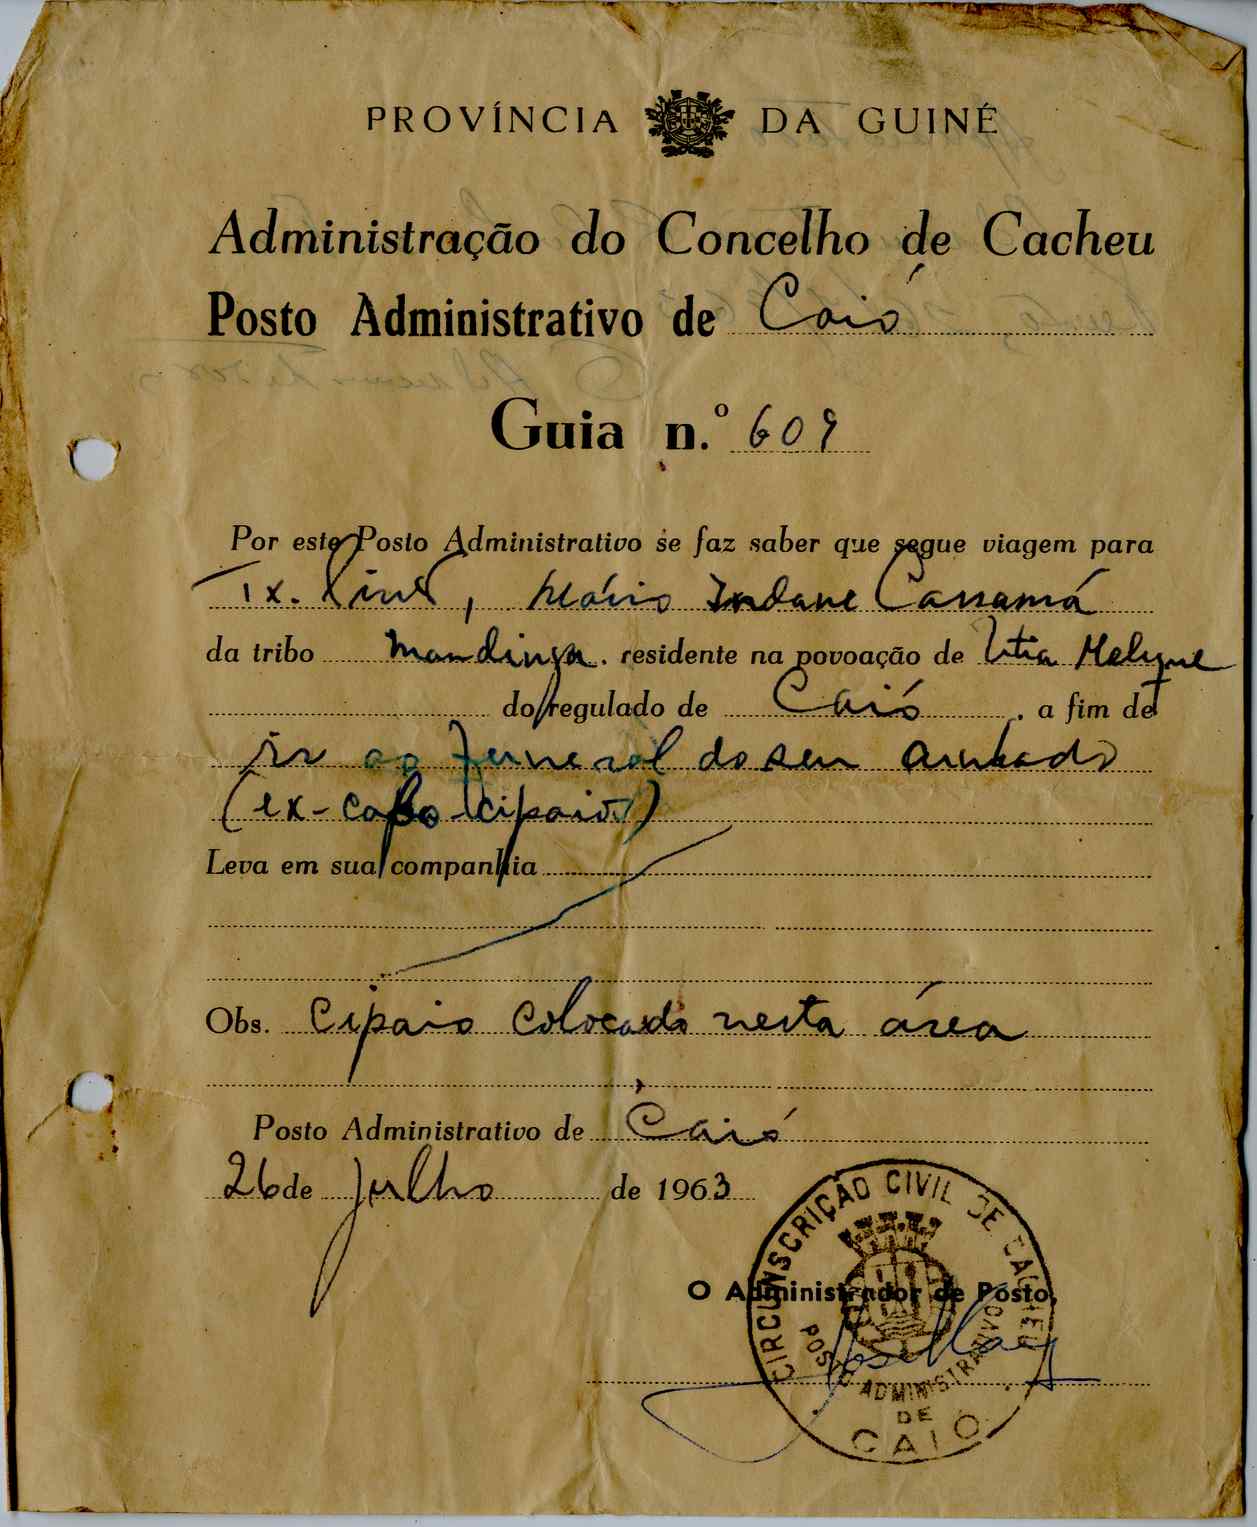 PROVÍNCIA DA GUINÉ
Administração do Concelho de Cacheu
Posto Administrativo de Caió
Guia n.º 609
Por este Posto Administrativo se faz saber que segue viagem para
Tx. Pint, Mário Indane Cassamá
da tribo Mandinga. residente na povoação de
do regulado de Caió, a fim de
ir ao funeral do seu cunhado
(ex-cabo cipaio)
Leva em sua companhia
Obs. Cipaio colocado nesta área
Posto Administrativo de Caió
26 de Julho de 1963
O Administrador de Posto,
CIRCUNSCRIÇÃO CIVIL DE CACHEU
POSTO ADMINISTRATIVO
DE
CAIÓ